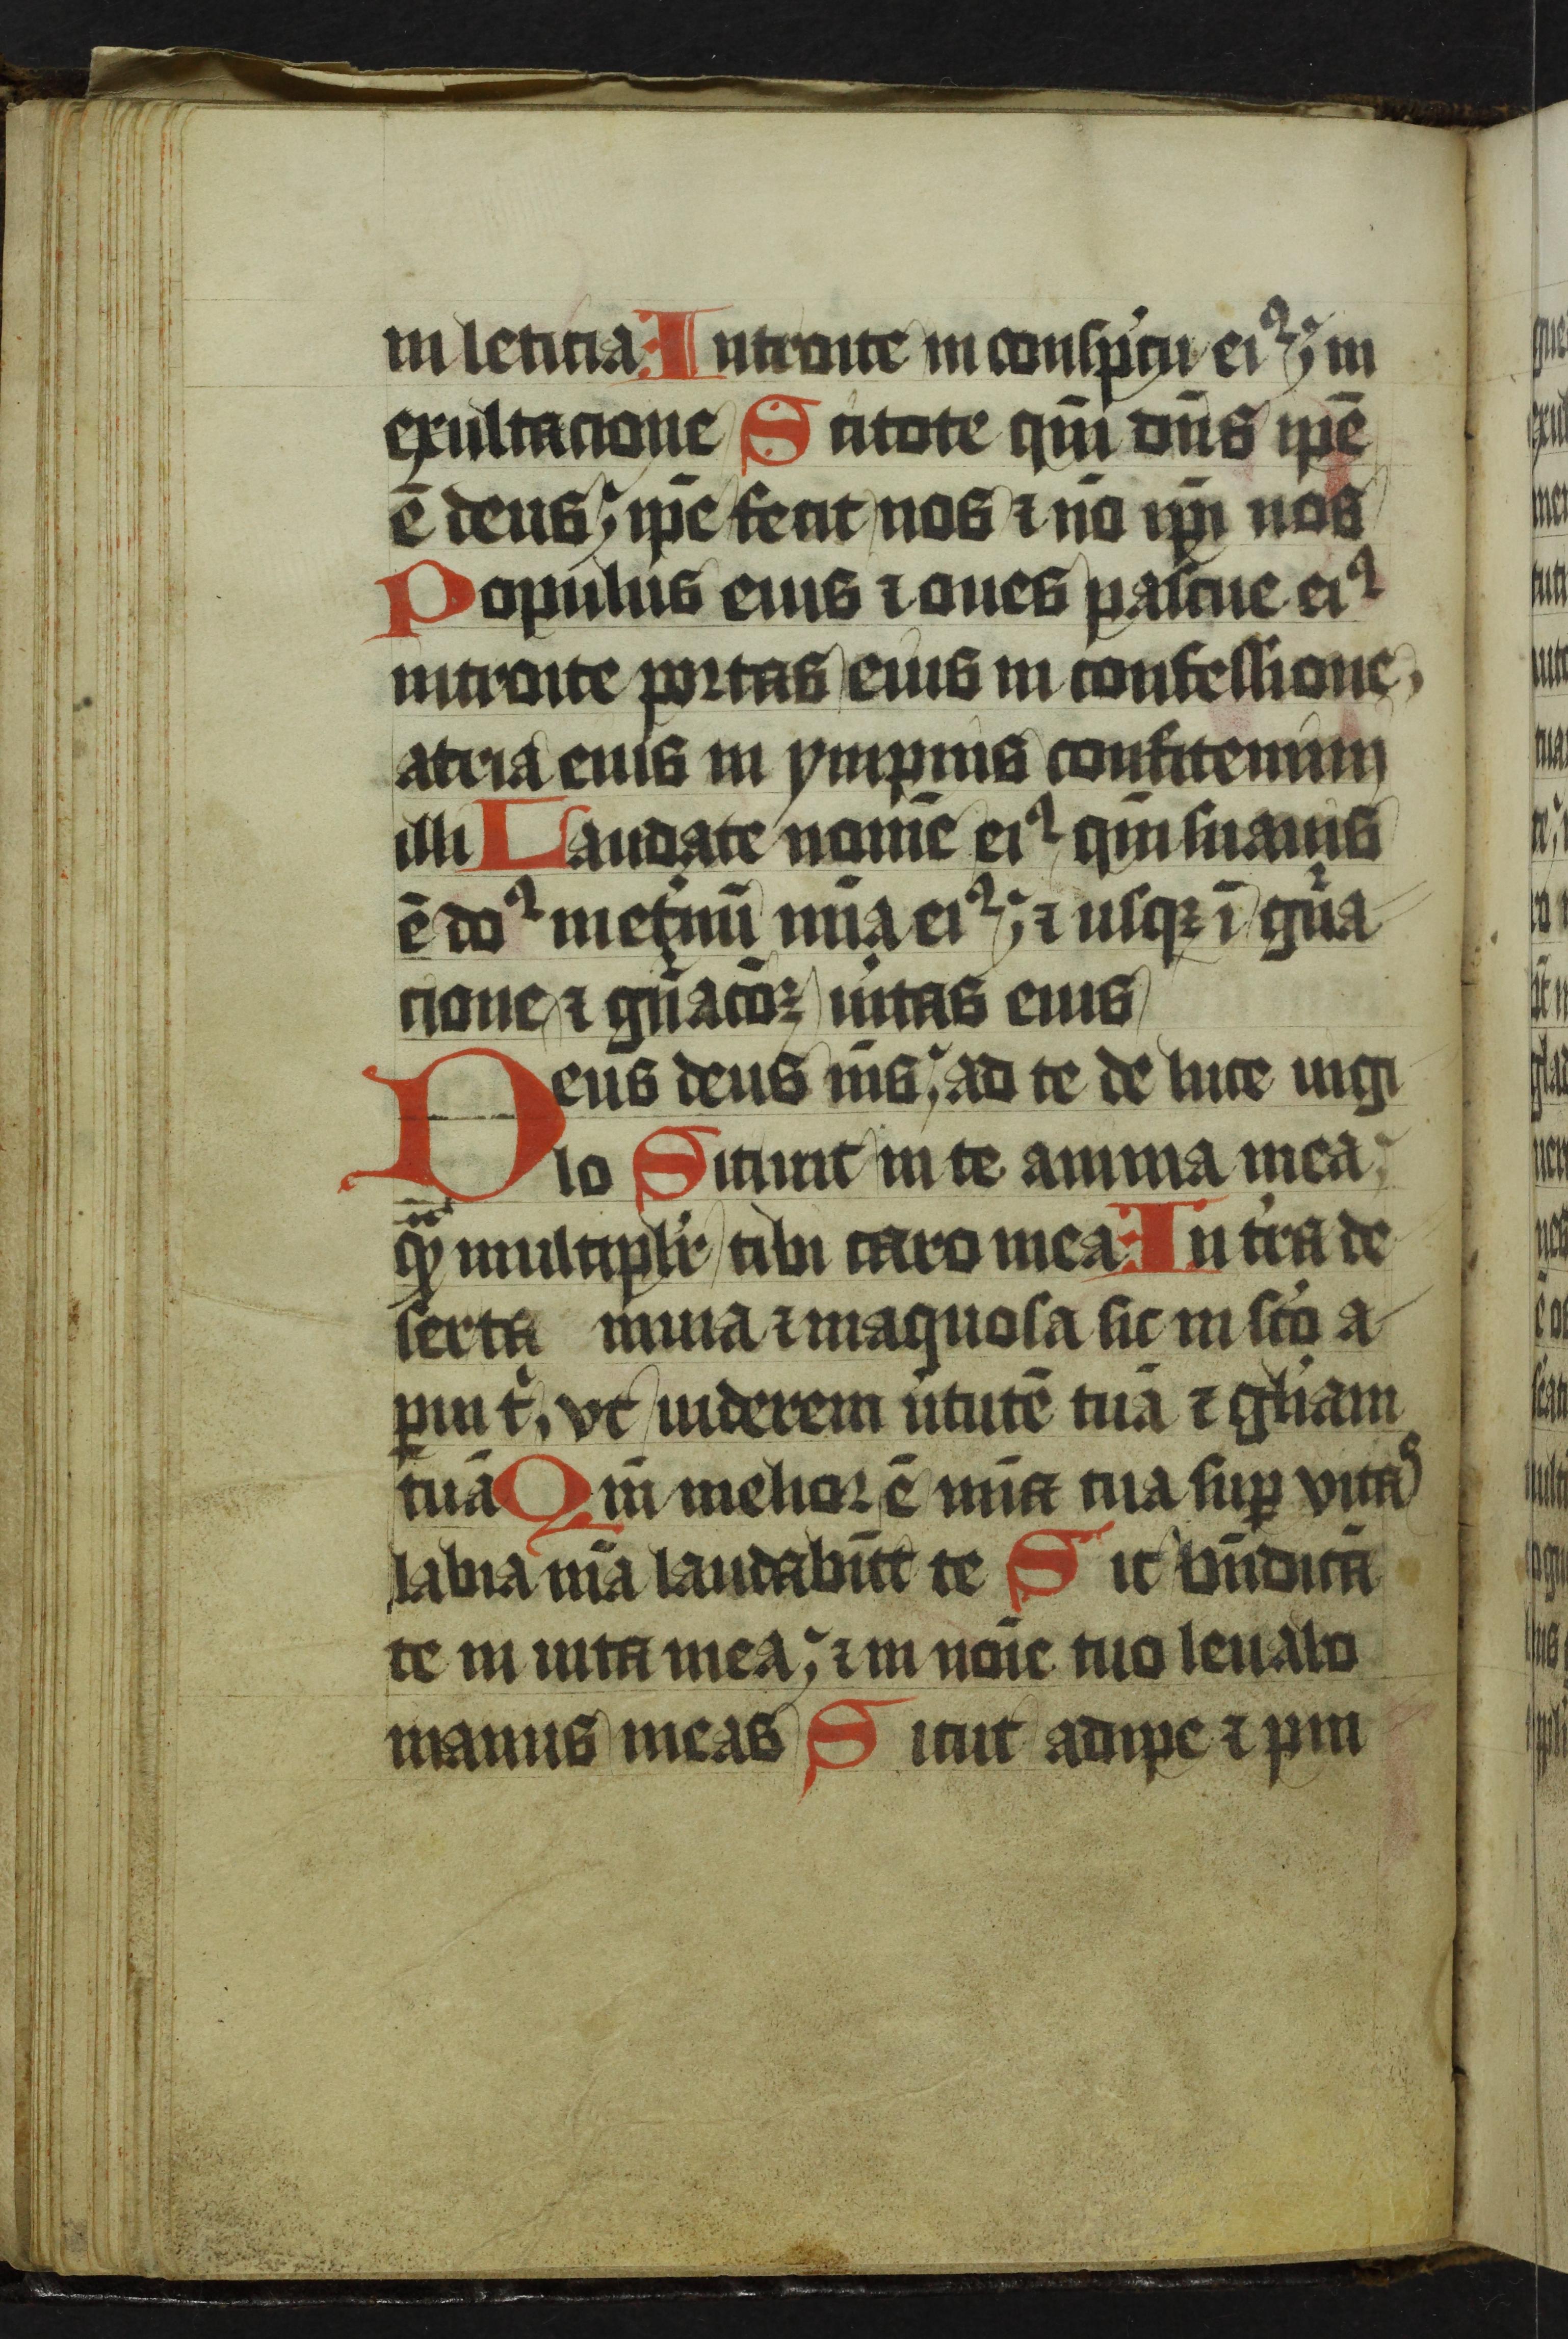 in leticia Introite in conspc̄tu ei⁹; in
exultacione Scitote qm̄ dn̄s ip̄e
ē deus; ip̄e fecit nos ⁊ nō ip̄i nos
Populus eius ⁊ oues pascue ei⁹
introite portas eius in confessione,
atria eius in ympnis confitemini
illi Laudate nomē ei⁹ qm̄ suauis
ē do⁹ in et̄nū mīa ei⁹; ⁊ usqꝫ ī gn̄a
cione ⁊ gn̄acōꝫ uītas eius
Deus deus m̄s; ad te de luce uigi
lo Sitiuit in te anima mea;
qͣ̄ multiplr̄ tibi caro mea In t̄ra de
serta inuia ⁊ inaquosa sic in sc̄o a
ꝑui t̄, vt uiderem ūtutē tuā ⁊ gl̄iam
tuā Qm̄ melior ē mīa tua suꝑ vitas
labia m̄a laudabūt te Sic bn̄dicā
te in uita mea; ⁊ in noīe tuo leuabo
manus meas Sicut adipe ⁊ pin